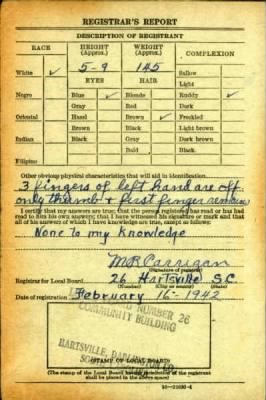 REGISTRAR'S REPORT
DESCRIPTION OF REGISTRANT
RACE HEIGHT (Approx.) WEIGHT (Approx.) COMPLEXION
5-9 145
White ✓ Sallow
EYES HAIR Light
Negro Blue ✓ Blonde Ruddy ✓
Gray Red Dark
Oriental Hazel Brown ✓ Freckled
Brown Black Light brown
Indian Black Gray Dark brown
Bald Black
Filipino
Other obvious physical characteristics that will aid in identification
3 fingers of left hand are off
only thumb + first finger remain
I certify that my answers are true; that the person registered has read or has had
read to him his own answers; that I have witnessed his signature or mark and that
all of his answers of which I have knowledge are true, except as follows:
None to my knowledge
M R Carrigan
(Signature of registrar)
Registrar for Local Board 26 Hartsville S.C.
(Number) (City or county) (State)
Date of registration February 16-1942
NUMBER 26
COMMUNITY BUILDING
HARTSVILLE, DARLINGTON CO
SOUTH CAROLINA
(STAMP OF LOCAL BOARD)
(The stamp of the Local Board having jurisdiction of the registrant
shall be placed in the above space.)